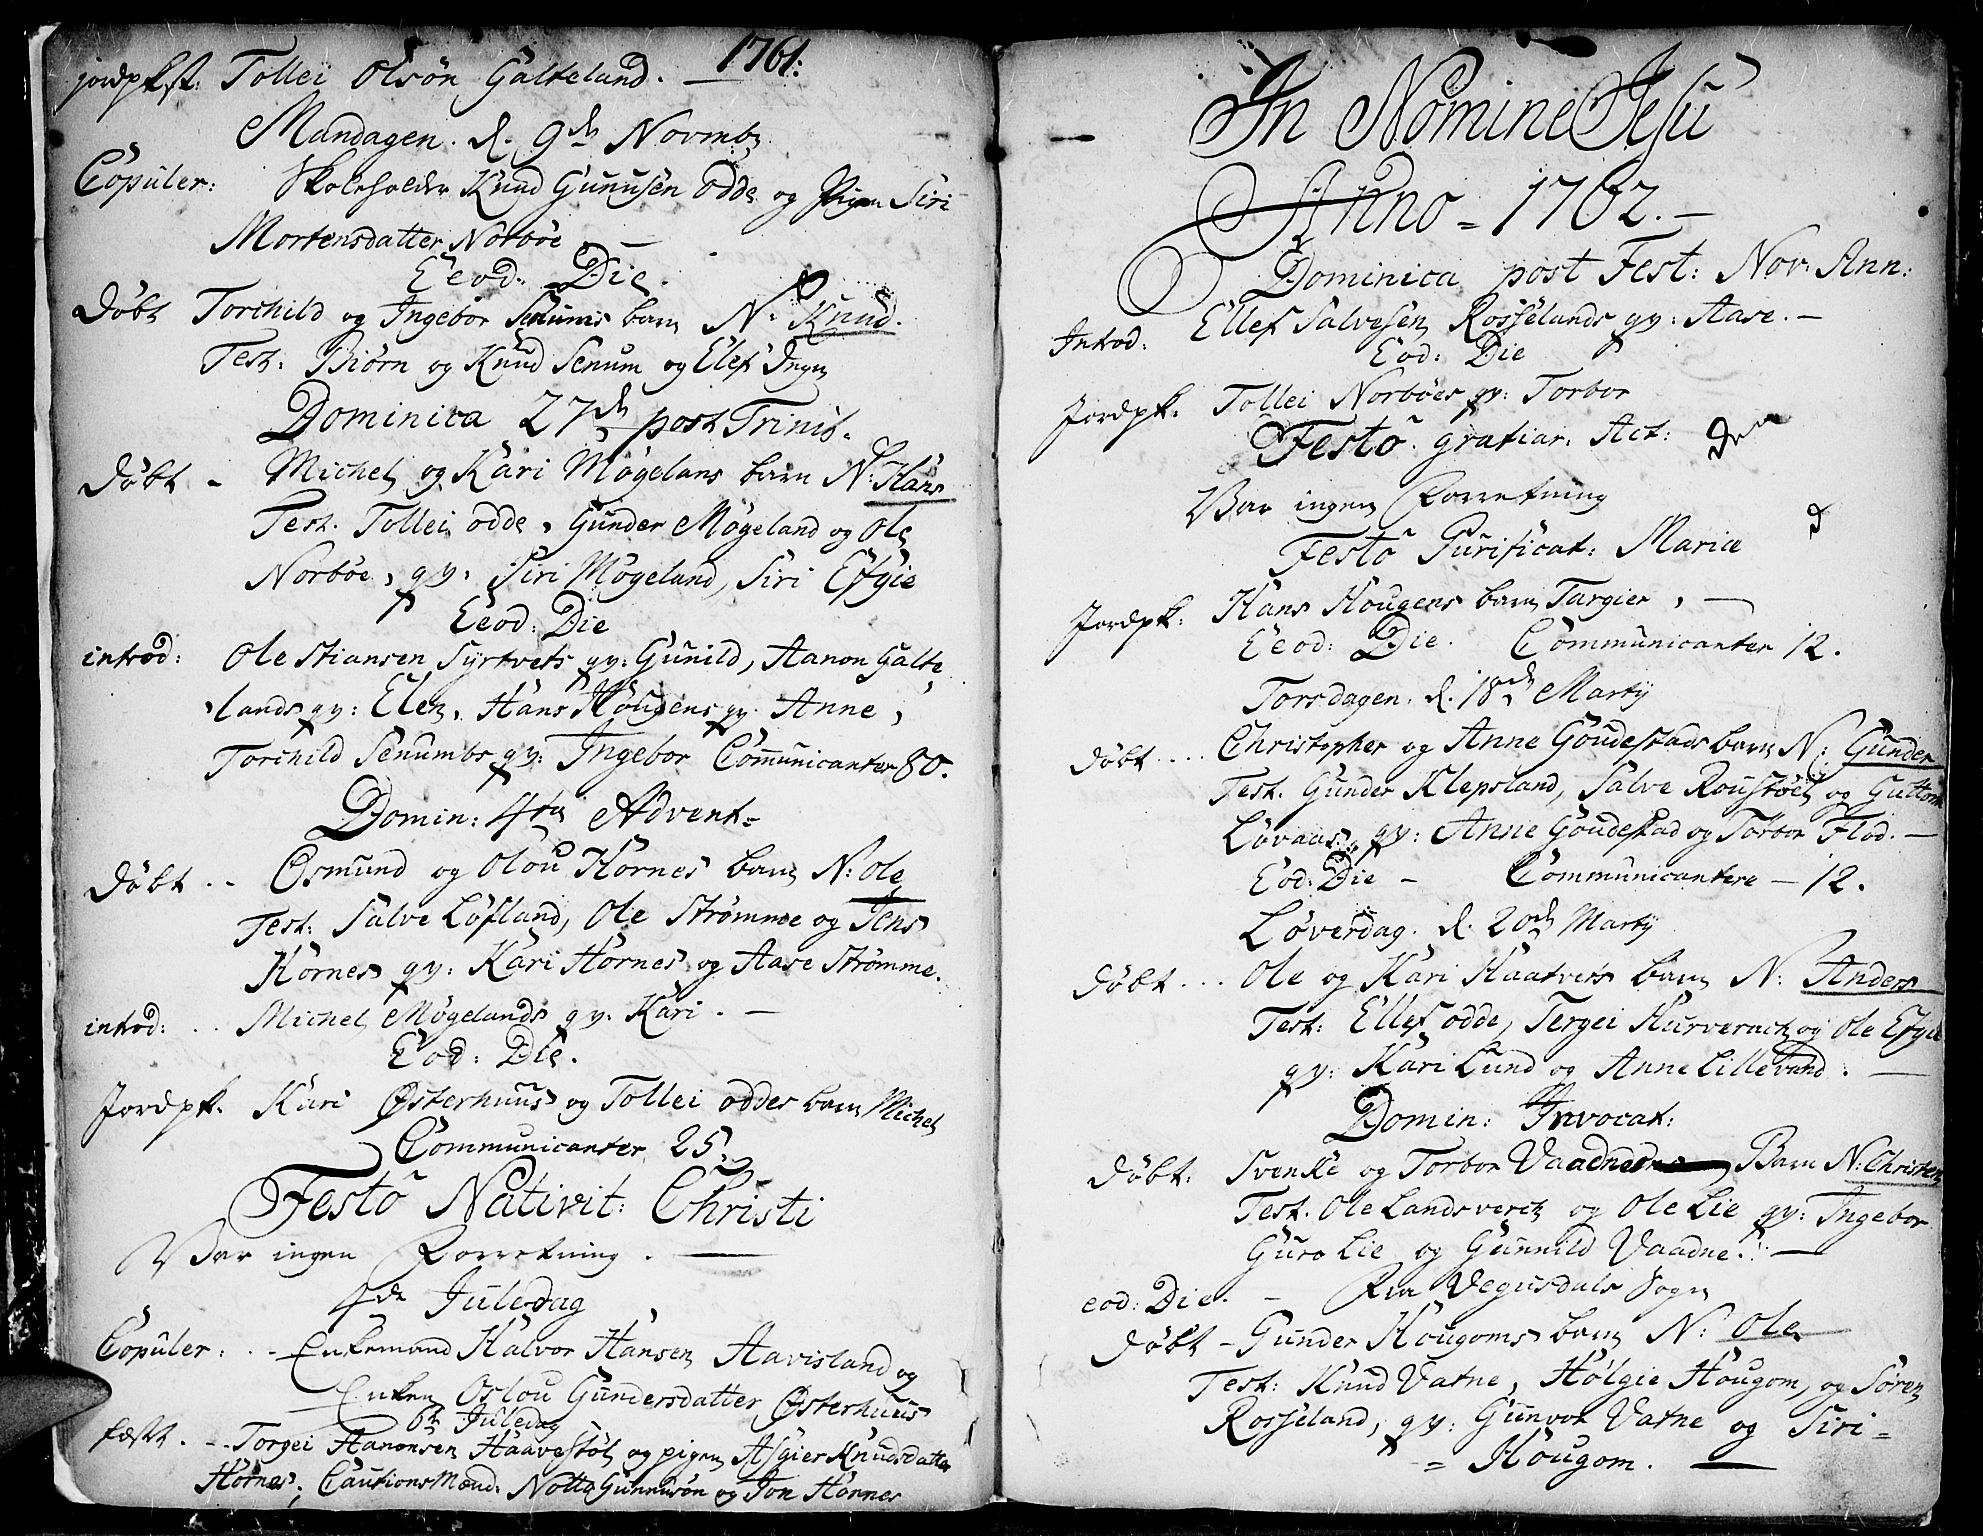 1761:
jordpkst: Tollei Olsøn Galteland. —
Mandagen. d. 9de Novmb.
Copuler: Skoleholder Knud Gunusen Odde og Pigen Siri
Mortensdatter Norbøe —
Eeod: Die.
Døbt Torchild og Ingebor Senums barn N: Knud.
Test: Biørn og Knud Senum og Elef
Dominica 27de post Trinit.
Døbt - Michel og Kari Møgelans barn N: Hans
Test. Tollei odde, Gunder Møgeland og Ole
Norbøe, qv: Siri Møgeland, Siri Efgie
Eeod: Die
introd: Ole Stiansen Syrtvets qv: Gunild, Aanon Galte
lands qv: Elen, Hans Hougens qv. Anne,
Torchild Senumbs qv: Ingebor Communicanter 80.
Domin: 4ta Advent.
Døbt .. Osmund og Olou Hornes barn N: Ole
Test: Salve Løfland, Ole Strømme og Jens
Hornes qv: Kari Hornes og Aase Strømme.
introd: .. Michel Møgelands qv: Kari. —
Eod: Die.
Jordpk. Kari Østerhuus og Tollei oddes barn Michel
Communicanter 25
Festo Nativit: Christi
Var ingen Forretning. —
4de Juledag
Copuler: .. Enkemand Halvor Hansen Aavisland og
Enken Oslou Gundersdatter Østerhuus
6te Juledag
fæstt. .. Torgei Aanonsen Haavestøl og pigen Asgier Knudsdatter
Hornes, Cautions Mænd: Notto Gunnusøn og Jon Hornes
In Nomine Jesu
Anno = 1762. —
Dominica post Fest: Nov: Ann:
Introd: Ellef Salvesen Rosselands qv: Aase. —
Eod: Die
Jordpk: Tollei Norbøes qv: Torbor
Festo gratiar: Act:
Var ingen Forretning
Festo Purificat: Mariæ
Jordpk: Hans Hougens barn Targier, —
Eeod: Die. Communicanter 12.
Torsdagen. d. 18de Martij
Døbt .... Christopher og Anne Goudestads barn N: Gunder
Test. Gunder Klepsland, Salve Roustøel og Guttorm
Løvaas, qv: Anne Goudestad og Torbor Flod. —
Eod: Die - Communicantere — 12.
Løverdag. d. 20de Martij
Døbt ... Ole og Kari Haatvets barn N: Anders
Test: Ellef odde, Tergei Hurverach og Ole Efgie
qv: Kari Lund og Anne Lillevand. —
Domin: Invocat:
Døbt: Svenke og Torbor Vaadnes Barn N: Christen
Test. Ole Landsverch og Ole Lie qv: Ingebor
Guro Lie og Gunnild Vaadne. —
eod: Die. - Fra Vegusdals Sogn
Døbt - Gunder Hougoms barn N: Ole
Test: Knud Vatne, Hølgie Hougom, og Søren
Rosseland, qv: Gunvor Vatne og Siri =
= Hougom. —